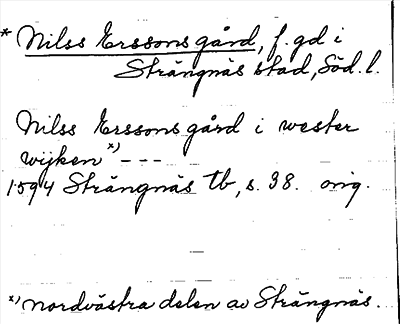 * Nilss Erssons gård, f. gd i
Strängnäs stad, Söd. l.
Nilss Erssons gård i wester
wijken *) - - -
1594 Strängnäs tb, s. 38. orig.
*) nordvästra delen av Strängnäs.